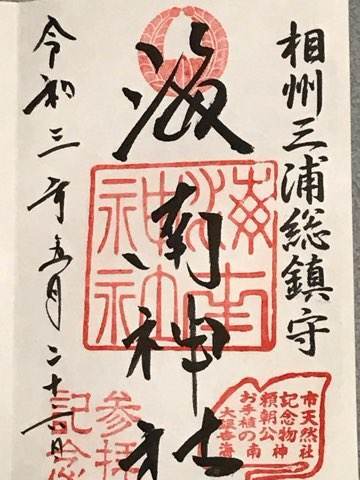 相州三浦総鎮守
海南神社
令和三年五月二十
海南神社
市天然
記念物
頼朝公
お手植の
大銀杏
海南神社
参拝
記念